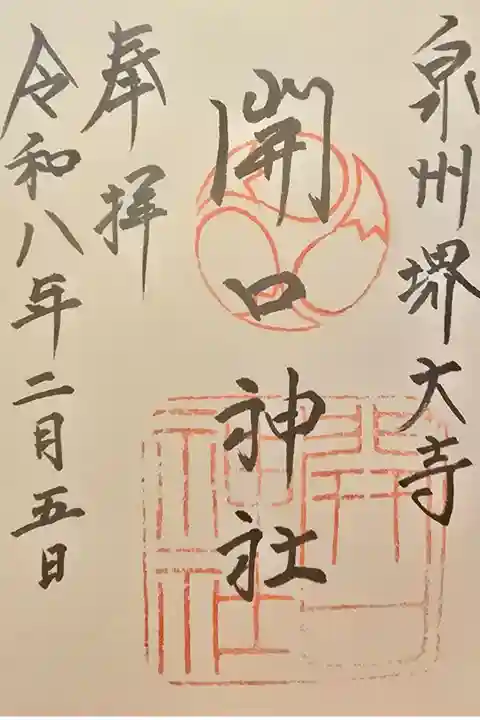 泉州堺大寺
開口神社
奉拝
令和八年二月五日
開口神社